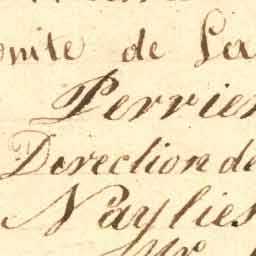 omite de La
Perrier
Direction de
Naylies